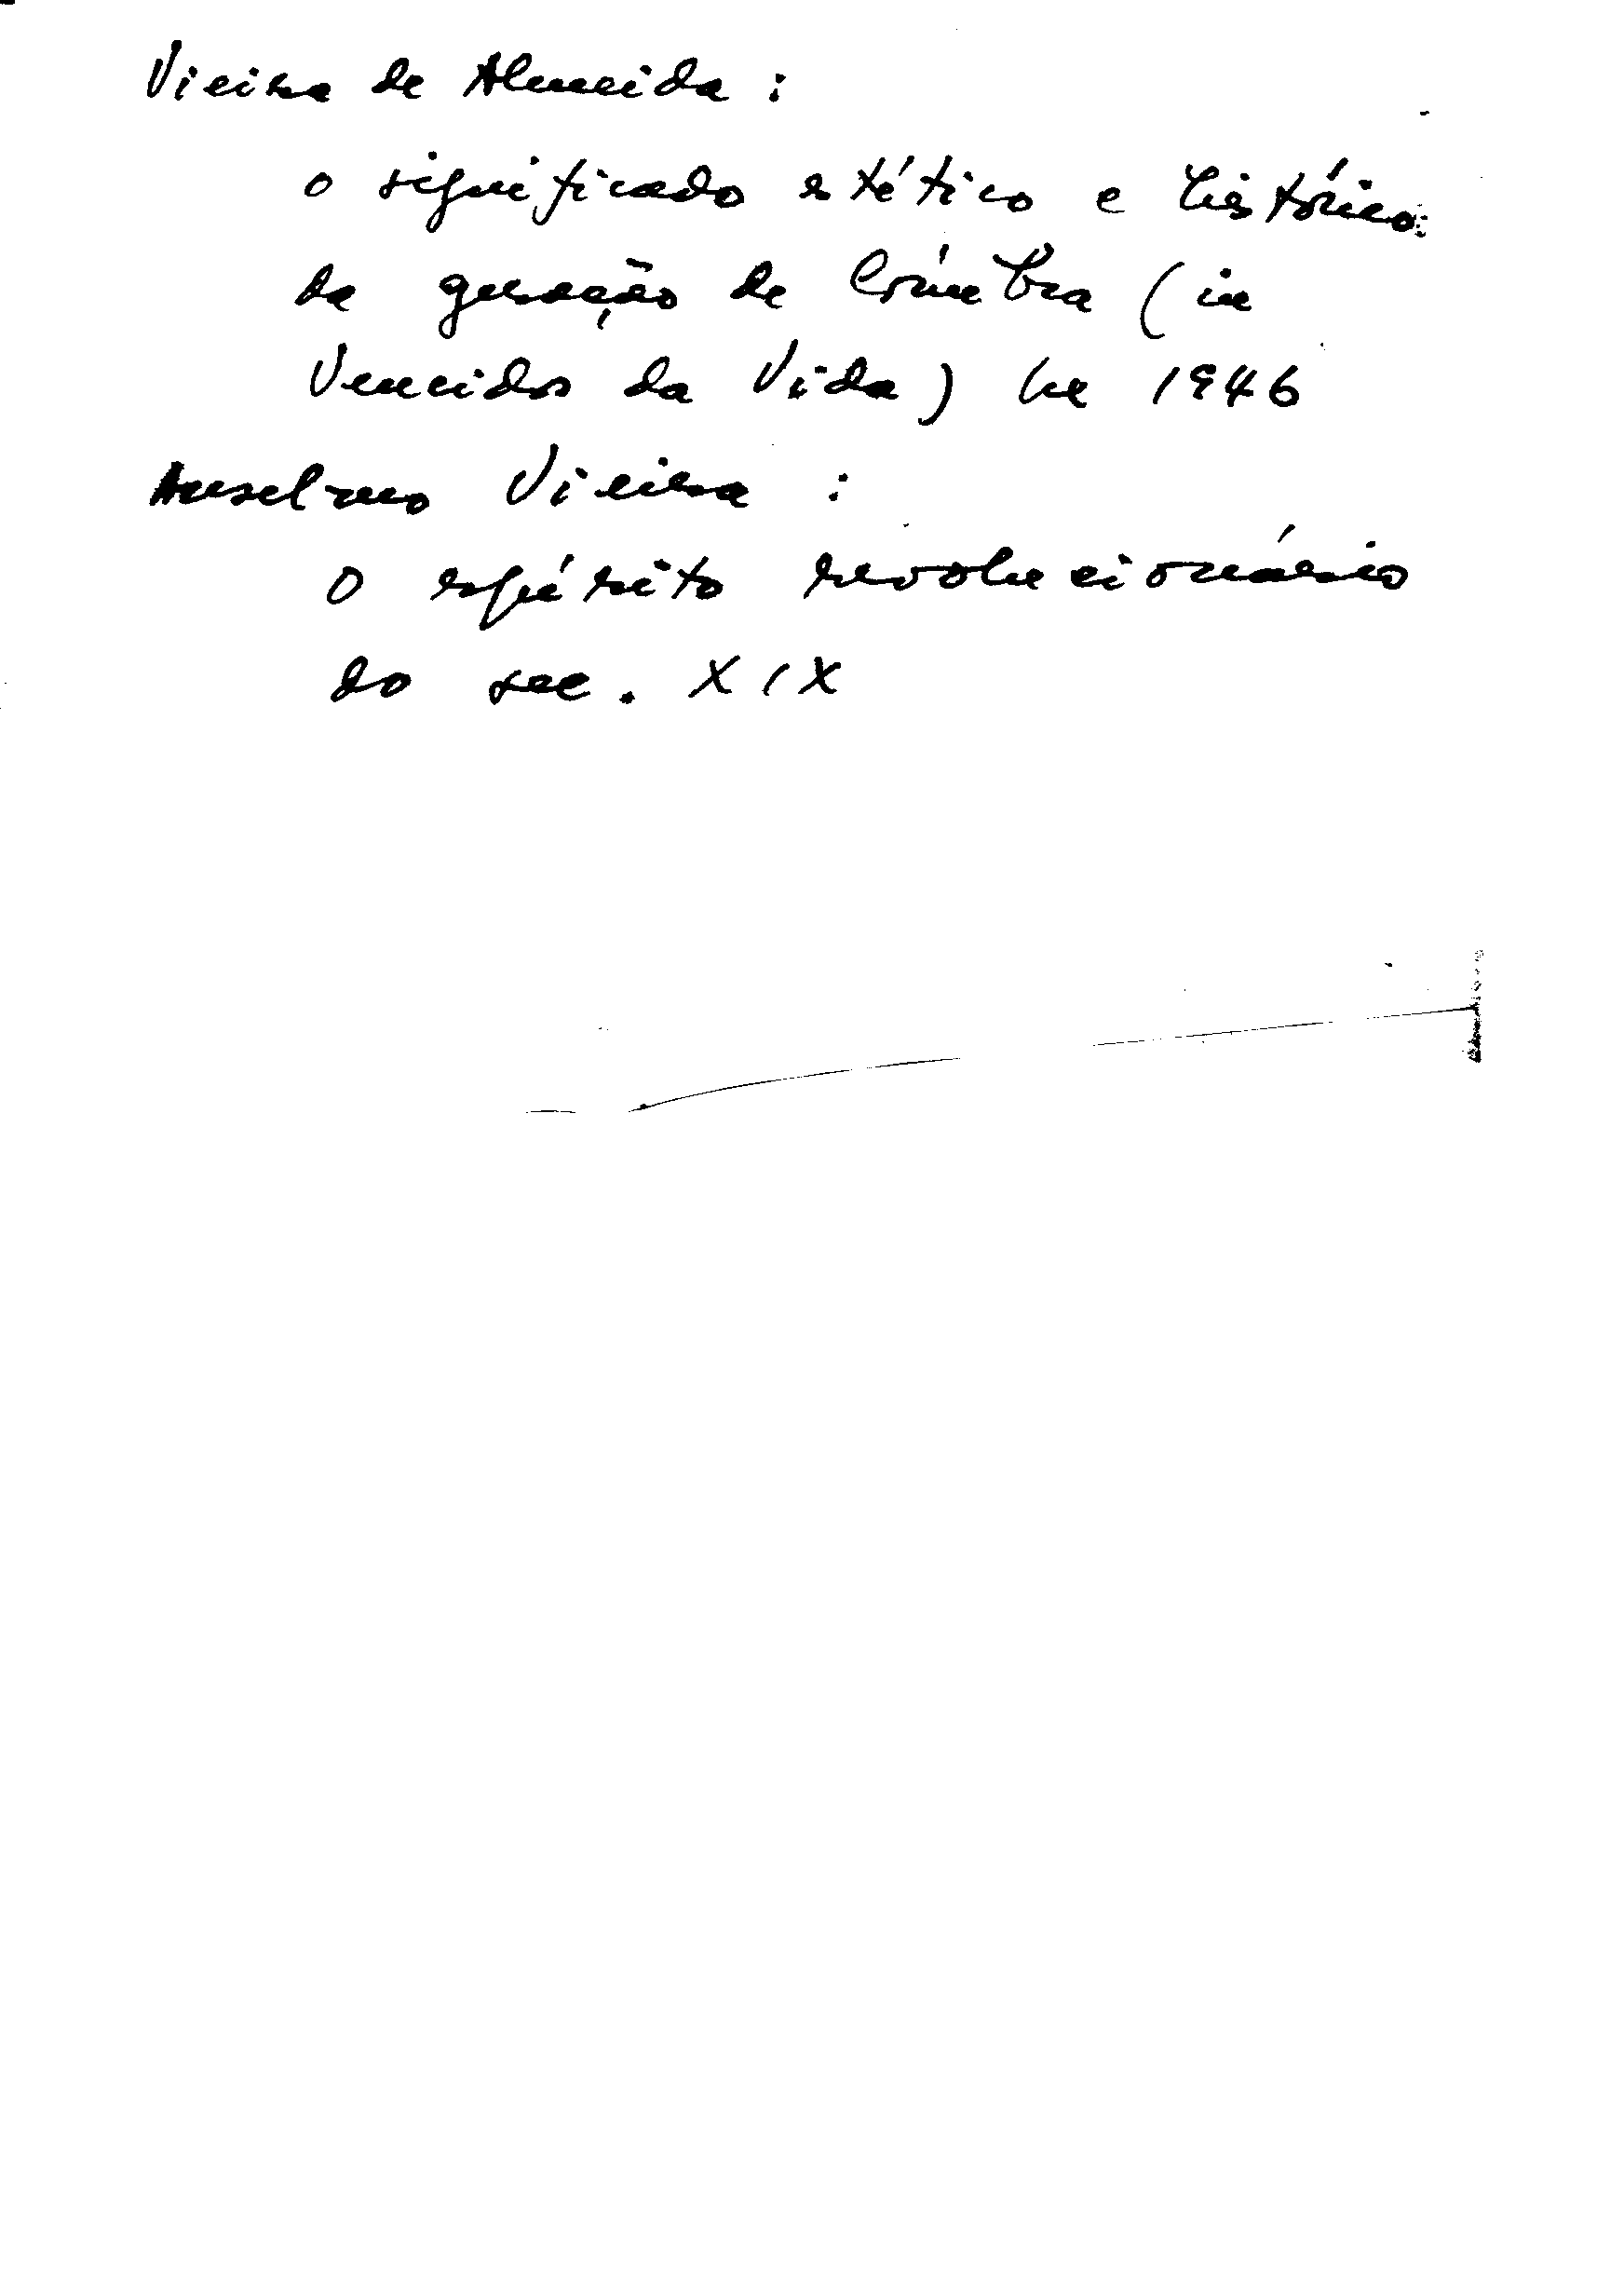 Vieira de Almeida :
o significado estético e histórico
da geração de Coimbra (in
Vencidos da Vida) Lx 1946
Anselmo Vieira :
O espírito revolucionário
do sec. XIX